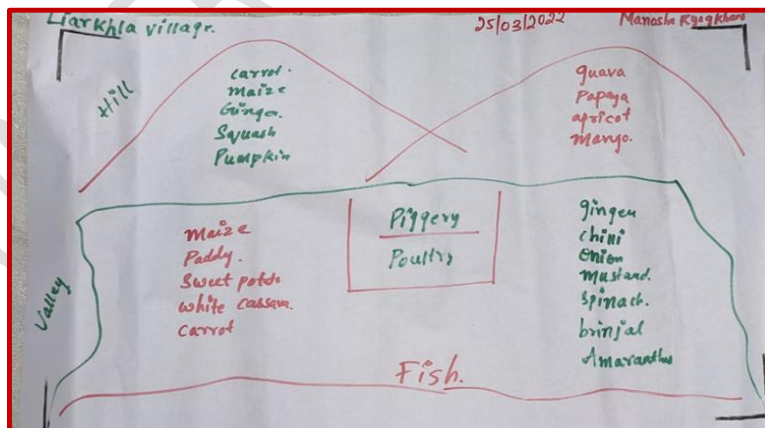 Liarkhla village.
25/03/2022
Hill
carrot.
maize
Ginger.
Squash
Pumpkin
guava
Papaya
apricot
Mango.
Valley
Maize
Paddy.
Sweet potato
white cassava.
carrot
Piggery
Poultry
ginger
chini
onion
mustard.
Spinach.
brinjal
Amaranthus
Fish.